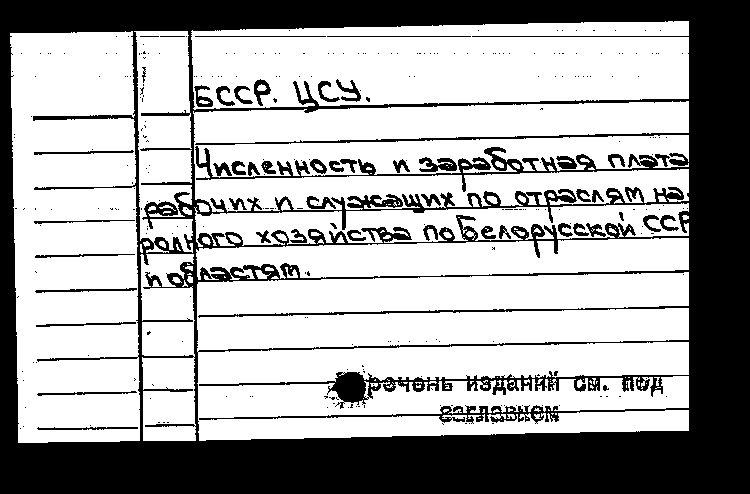 БССР. ЦСУ.
Численность и заработная плата
рабочих и служащих по отраслям на-
родного хозяйства по Белорусской ССР
и областям.
речень изданий см. под
заглавием